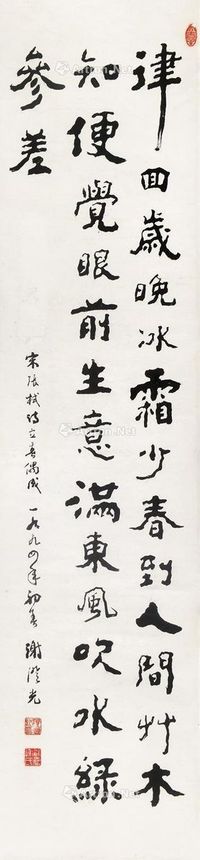 律回歲晚冰霜少春到人間艸木
知便覺眼前生意滿東風吹水綠
參差
宋張栻詩立春偶成 一九九四年初春 謝澄光